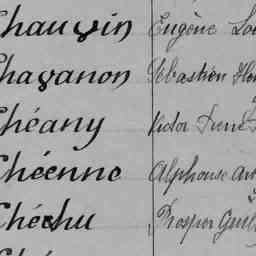 Chauvin Eugène
Chavanon Sébastien
Chéany Victor René
Chéenne Alphonse
Chéchu Prosper